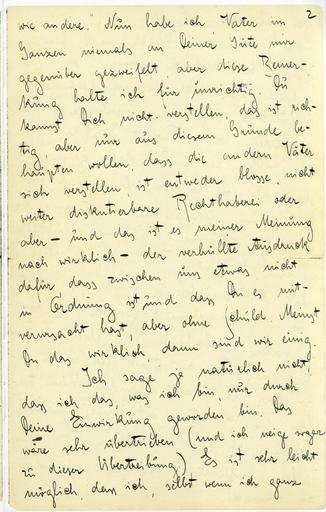 2
wie andere." Nun habe ich Vater im
Ganzen niemals an Deiner Güte mir
gegenüber gezweifelt, aber diese Bemer-
kung halte ich für unrichtig. Du
kannst Dich nicht verstellen, das ist rich-
tig, aber nur aus diesem Grunde be-
haupten wollen, dass die andern Väter
sich verstellen, ist entweder blosse, nicht
weiter diskutierbare Rechthaberei oder
aber – und das ist es meiner Meinung
nach wirklich – der verhüllte Ausdruck
dafür dass zwischen uns etwas nicht
in Ordnung ist und dass Du es mit-
verursacht hast, aber ohne Schuld. Meinst
Du das wirklich, dann sind wir einig.
Ich sage ja natürlich nicht,
dass ich das, was ich bin, nur durch
Deine Einwirkung geworden bin. Das
wäre sehr übertrieben (und ich neige sogar
zu dieser Übertreibung.) Es ist sehr leicht
möglich, dass ich, selbst wenn ich ganz